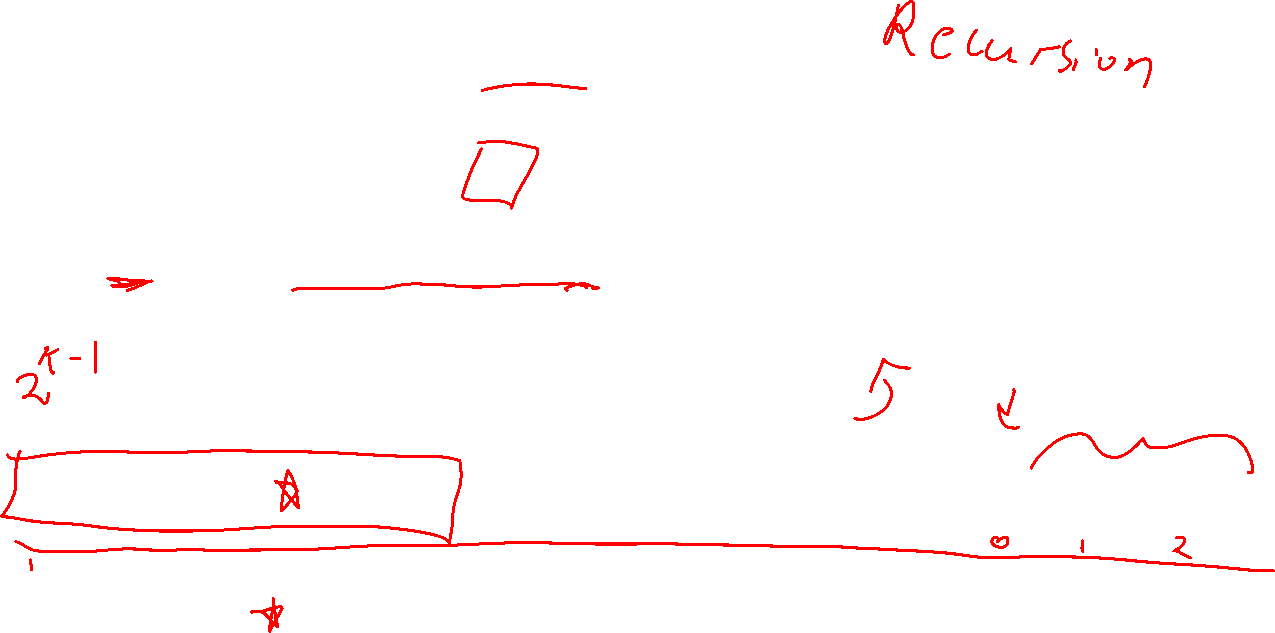 Recursion
2^{k-1}
5
0 1 2
1